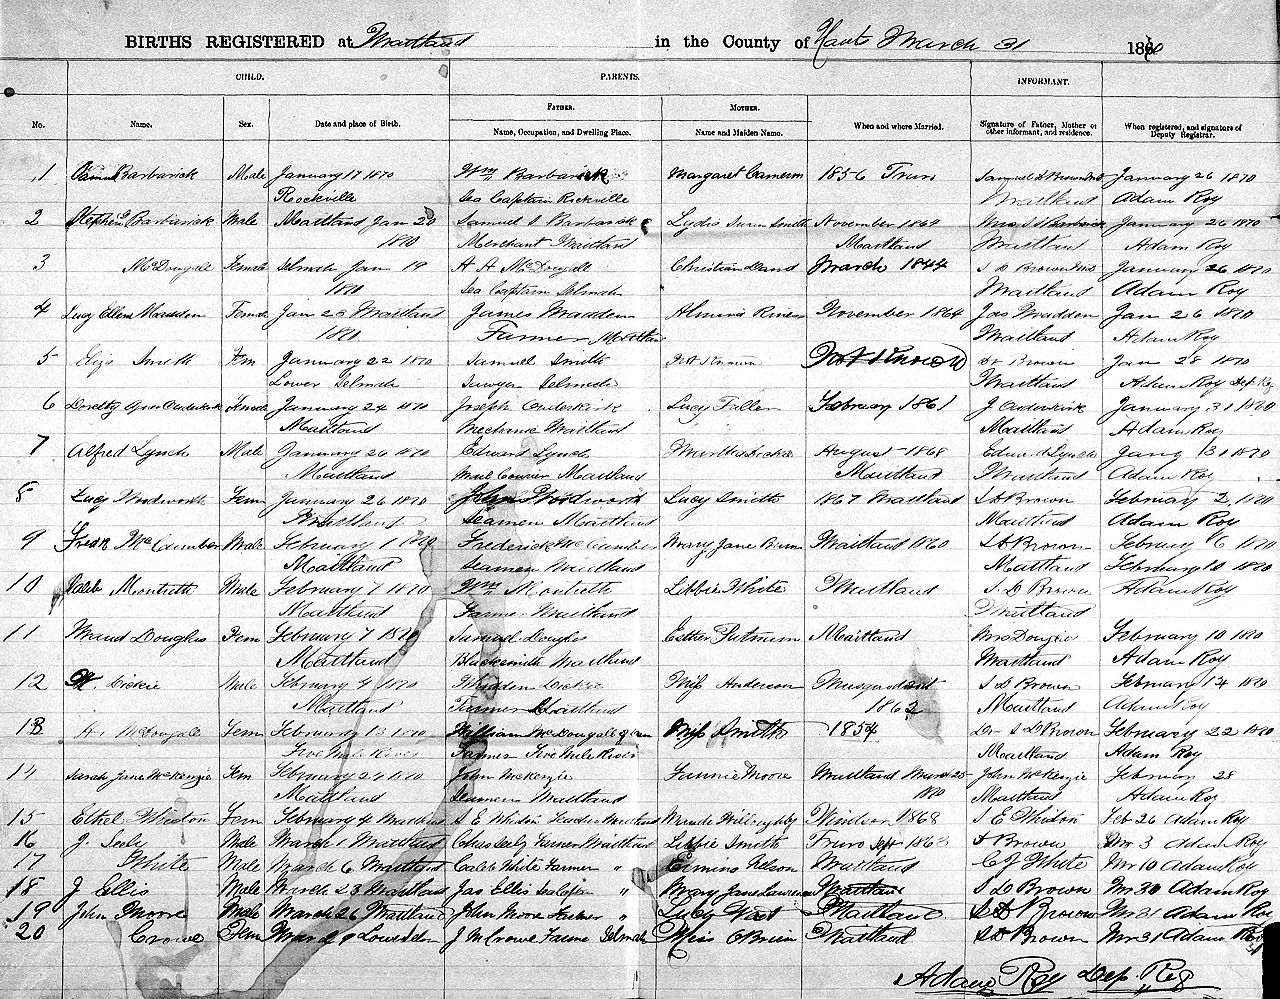 BIRTHS REGISTERED at Maitland in the County of Hants March 31 1870
CHILD. PARENTS. INFORMANT.
FATHER. MOTHER.
No. Name. Sex. Date and place of Birth. Name, Occupation, and Dwelling Place. Name and Maiden Name. When and where Married. Signature of Father, Mother or other informant, and residence. When registered, and signature of Deputy Registrar.
1 Barbarick Male January 17 1870 Wm Barbarick Margaret Cameron 1856 Truro January 26 1870
Rockville Sea Captain Rockville Maitland Adam Roy
2 Stephen Barbarick Male Maitland Jan 20 Samuel S Barbarick Lydia Smith November 1869 January 26 1870
1870 Merchant Maitland Maitland Maitland Adam Roy
3 McDougall Female Selmah Jan 19 A A McDougall Christian March 1844 S D Brown January 26 1870
1870 Sea Captain Selmah Maitland Adam Roy
4 Lucy Ellen Madden Female Jan 23 Maitland James Madden Almira November 1864 Jas Madden Jan 26 1870
1870 Farmer Maitland Maitland Adam Roy
5 Eliza Smith Fem January 22 1870 Samuel Smith Not Known Not Known Dr Brown Jan 28 1870
Lower Selmah Sawyer Selmah Maitland Adam Roy Dep Reg
6 Dorothy Agnes Female January 24 1870 Joseph Lucy Faller February 1861 J January 31 1870
Maitland Mechanic Maitland Maitland Adam Roy
7 Alfred Lynch Male January 26 1870 Edward Lynch Martha August 1868 Edward Lynch 31 1870
Maitland Mail Courier Maitland Maitland Maitland Adam Roy
8 Lucy Woodworth Fem January 26 1870 Woodworth Lucy Smith 1867 Maitland S D Brown February 2 1870
Maitland Seamen Maitland Maitland Adam Roy
9 Fredk McCumber Male February 1 1870 Frederick McCumber Mary Jane Maitland 1860 S D Brown February 6 1870
Maitland Seamen Maitland Maitland February 10 1870
10 Caleb Monteith Male February 7 1870 Wm Monteith Libbie White Maitland S D Brown Adam Roy
Maitland Farmer Maitland Maitland
11 Maud Douglas Fem February 7 1870 Samuel Douglas Esther Putnam Maitland Mrs Douglas February 10 1870
Maitland Blacksmith Maitland Maitland Adam Roy
12 Dickie Male February 4 1870 Dickie Miss Anderson Musquodoboit S D Brown February 14 1870
Maitland Farmer Maitland 1862 Maitland Adam Roy
13 McDougall Fem February 13 1870 William McDougall Miss Smith 1854 Dr S D Brown February 22 1870
Five Mile River Farmer Five Mile River Maitland Adam Roy
14 Sarah Jane McKenzie Fem February 24 1870 John McKenzie Fannie Moore Maitland March 25 John McKenzie February 28
Maitland Seamen Maitland 1870 Maitland Adam Roy
15 Ethel Whidon Fem February 4 Maitland S E Whidon Teacher Maitland Maude Willoughby Windsor 1868 S E Whidon Feb 26 Adam Roy
16 J. Sealy Male March 1 Maitland Chas Sealy Farmer Maitland Libbie Smith Truro Sept 1863 Brown Mr 3 Adam Roy
17 White Male March 6 Maitland Caleb White Farmer " Ermina Nelson Maitland C J White Mr 10 Adam Roy
18 J Ellis Male March 23 Maitland Jas Ellis Sea Captan " Mary Jane Lawrence Maitland S D Brown Mr 30 Adam Roy
19 John Moore Male March 26 Maitland John Moore Farmer " Lucy West Maitland S D Brown Mr 31 Adam Roy
20 Crowe Fem March 9 J M Crowe Farmer Selmah Miss O'Brien Maitland S D Brown Mr 31 Adam Roy
Adam Roy Dep Reg